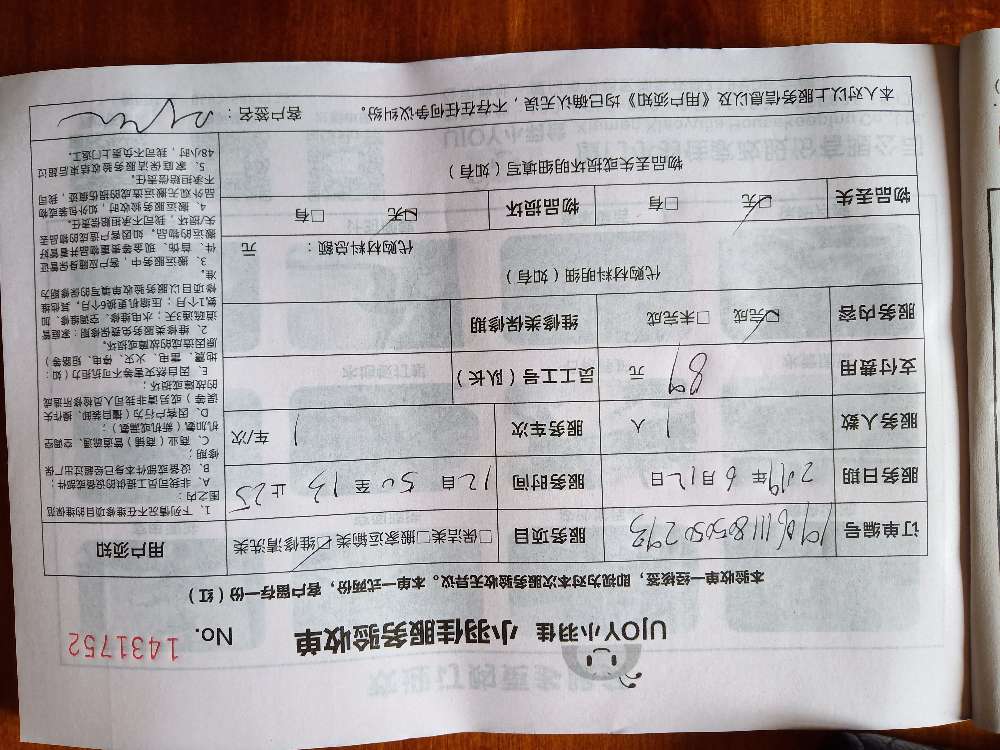 UJOY小羽佳 小羽佳服务验收单 No. 1431752
本验收单一经核签，即视为对本次服务验收无异议。本单一式两份，客户留存一份（红）
订单编号 1906111805050293 服务项目 □保洁类□搬家运输类☑维修清洗类
服务日期 2019年6月12日 服务时间 12自50至13止25
服务人数 1人 服务车次 1车/次
支付费用 89元 员工工号（队长）
服务内容 ☑完成 □未完成 维修类保修期
代购材料明细（如有）
代购材料总额： 元
物品丢失 ☑无 □有 物品损坏 ☑无 □有
物品丢失或损坏明细填写（如有）
用户须知
1、下列情况不在维修项目的维保范
围之内：
A、非我司员工提供的设备或部件；
B、设备或部件本身已经超过出厂保
修期；
C、商业（商铺）管道疏通、空调空
机加氨（新机或漏氟）；
D、因客户行为（擅自装卸、操作失
误等）或另请非我司人员检修所造成
的故障或损坏；
E、因自然灾害等不可抗力阻（如：
地震、雷电、火灾、停电、短路等）
原因造成的故障或损坏。
2、维修类服务免费保修期：家庭管
道疏通3天；水电维修、空调维修、加
氨1个月；压缩机更换6个月，其他维
修项目以服务验收单填写的保修期为
准。
3、搬运服务中，客户应随身保管证
件、首饰、现金等贵重物品并看管好
搬运的物品，如因客户造成的物品丢
失/损坏，我司不承担赔偿责任。
4、搬运服务验收时，如外包装或物
品外观无搬运造成的损伤痕迹，我司
不承担赔偿责任。
5、家庭保洁服务验收结束后超过
48小时，我司不负责上门返工。
本人对以上服务信息以及《用户须知》均已确认无误，不存在任何争议纠纷。 客户签名：